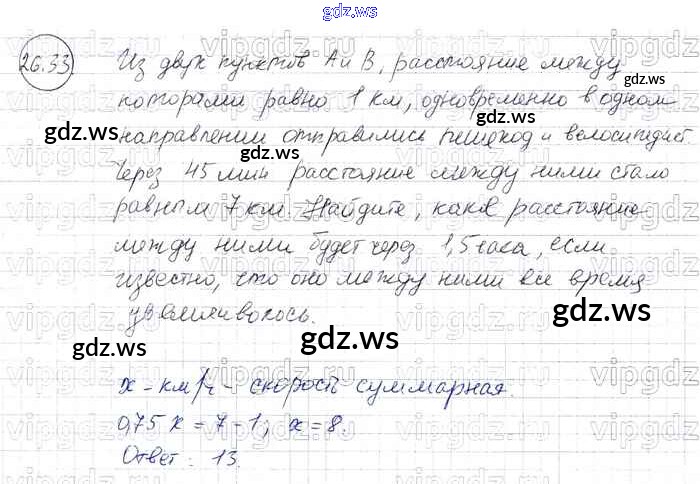 gdz.ws
26.33. Из двух пунктов А и В, расстояние между
которами равно 1 км, одновременно в одном
направлении отправились пешеход и велосипедист.
Через 45 мин расстояние между ними стало
равным 7 км. Найдите, какое расстояние
между ними будет через 1,5 часа, если
известно, что оно между ними все время
увеличивалось.
x - км/ч - скорость суммарная.
0,75 x = 7 - 1; x = 8.
Ответ: 13.
gdz.ws
gdz.ws
gdz.ws
gdz.ws
gdz.ws
gdz.ws
gdz.ws
gdz.ws